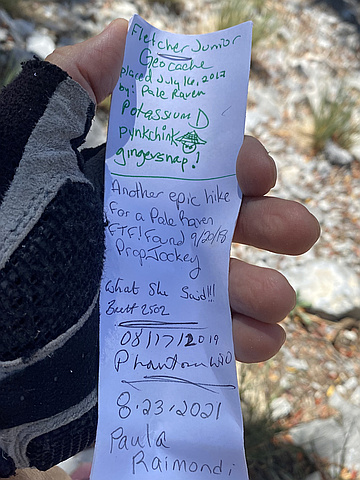 Fletcher Junior
Geocache
placed July 16, 2017
by: Pale Raven
Potassium D
pynkchink
gingersnap!
Another epic hike
for a Pale Raven
FTF! Found 9/20/18
PropJockey
What She Said!!!
Brett 2502
08/17/2019
8.23.2021
Paula
Raimondi